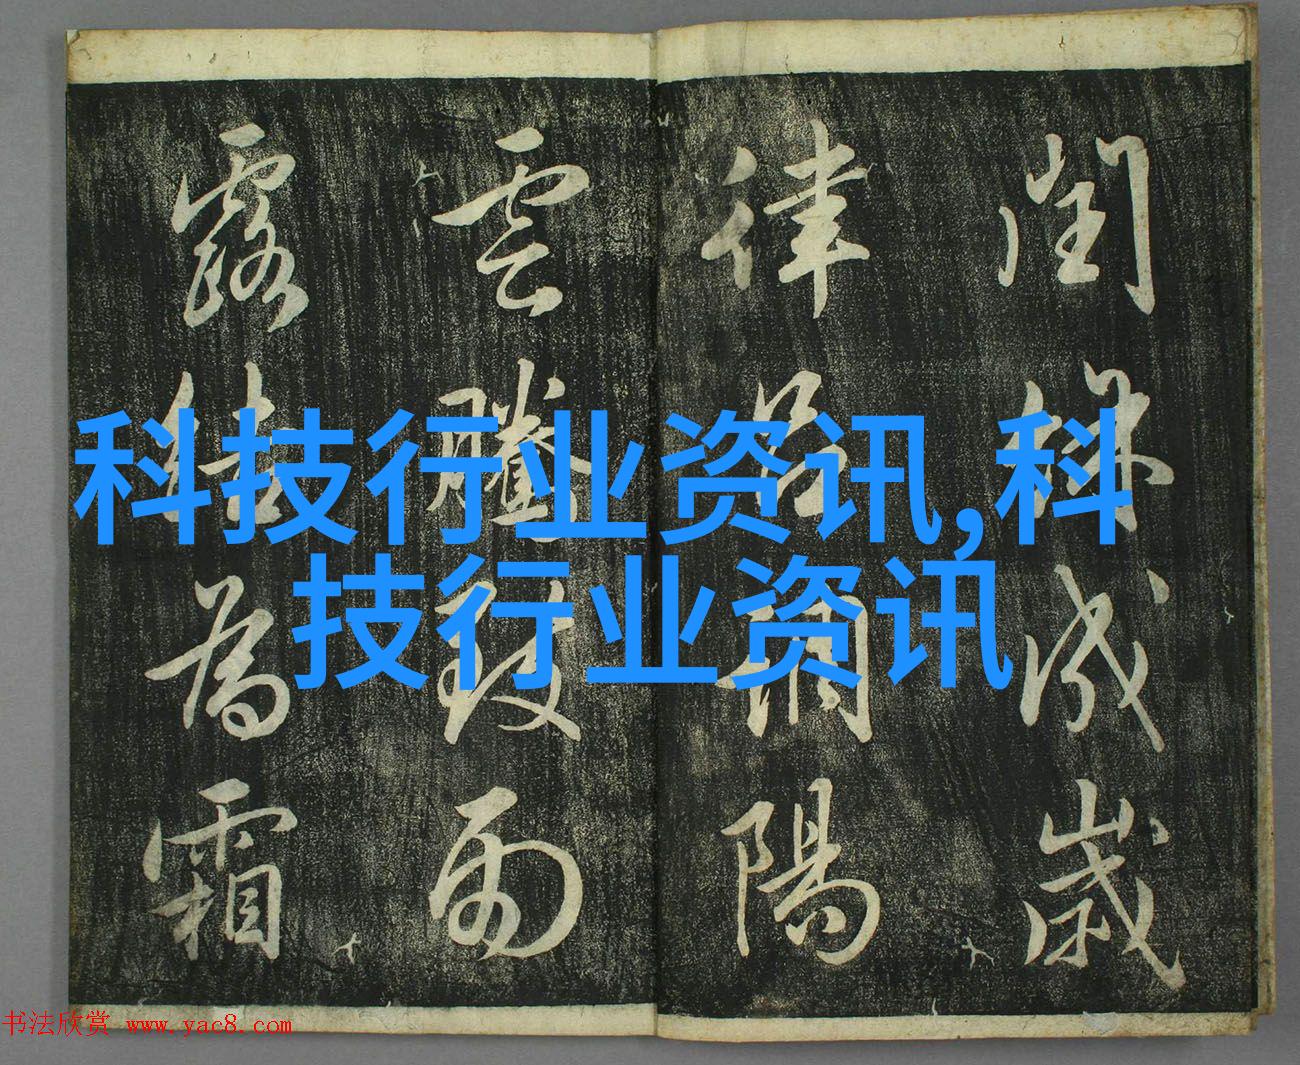 閏餘成歲
律吕調陽
雲騰致雨
露結為霜
科技行业资讯,科
技行业资讯
书法欣赏 www.yac8.com